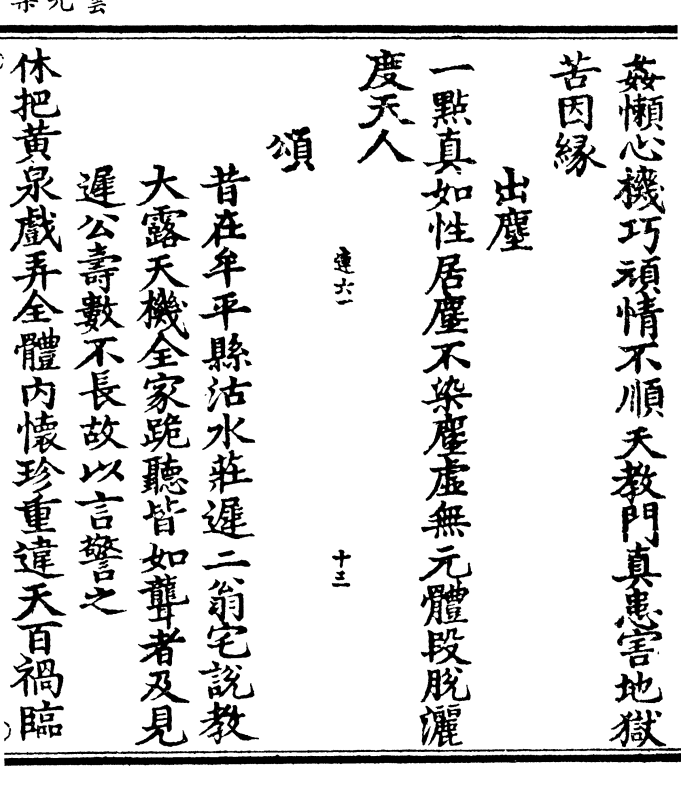 姦懶心機巧頑情不順天教門真患害地獄
苦因緣
出塵
一點真如性居塵不染塵虛無元體段脫灑
度天人
連六一 十三
頌
昔在牟平縣沽水莊遲二翁宅說教
大露天機全家跪聽皆如聾者及見
遲公壽數不長故以言警之
休把黃泉戲弄全體內懷珍重違天百禍臨